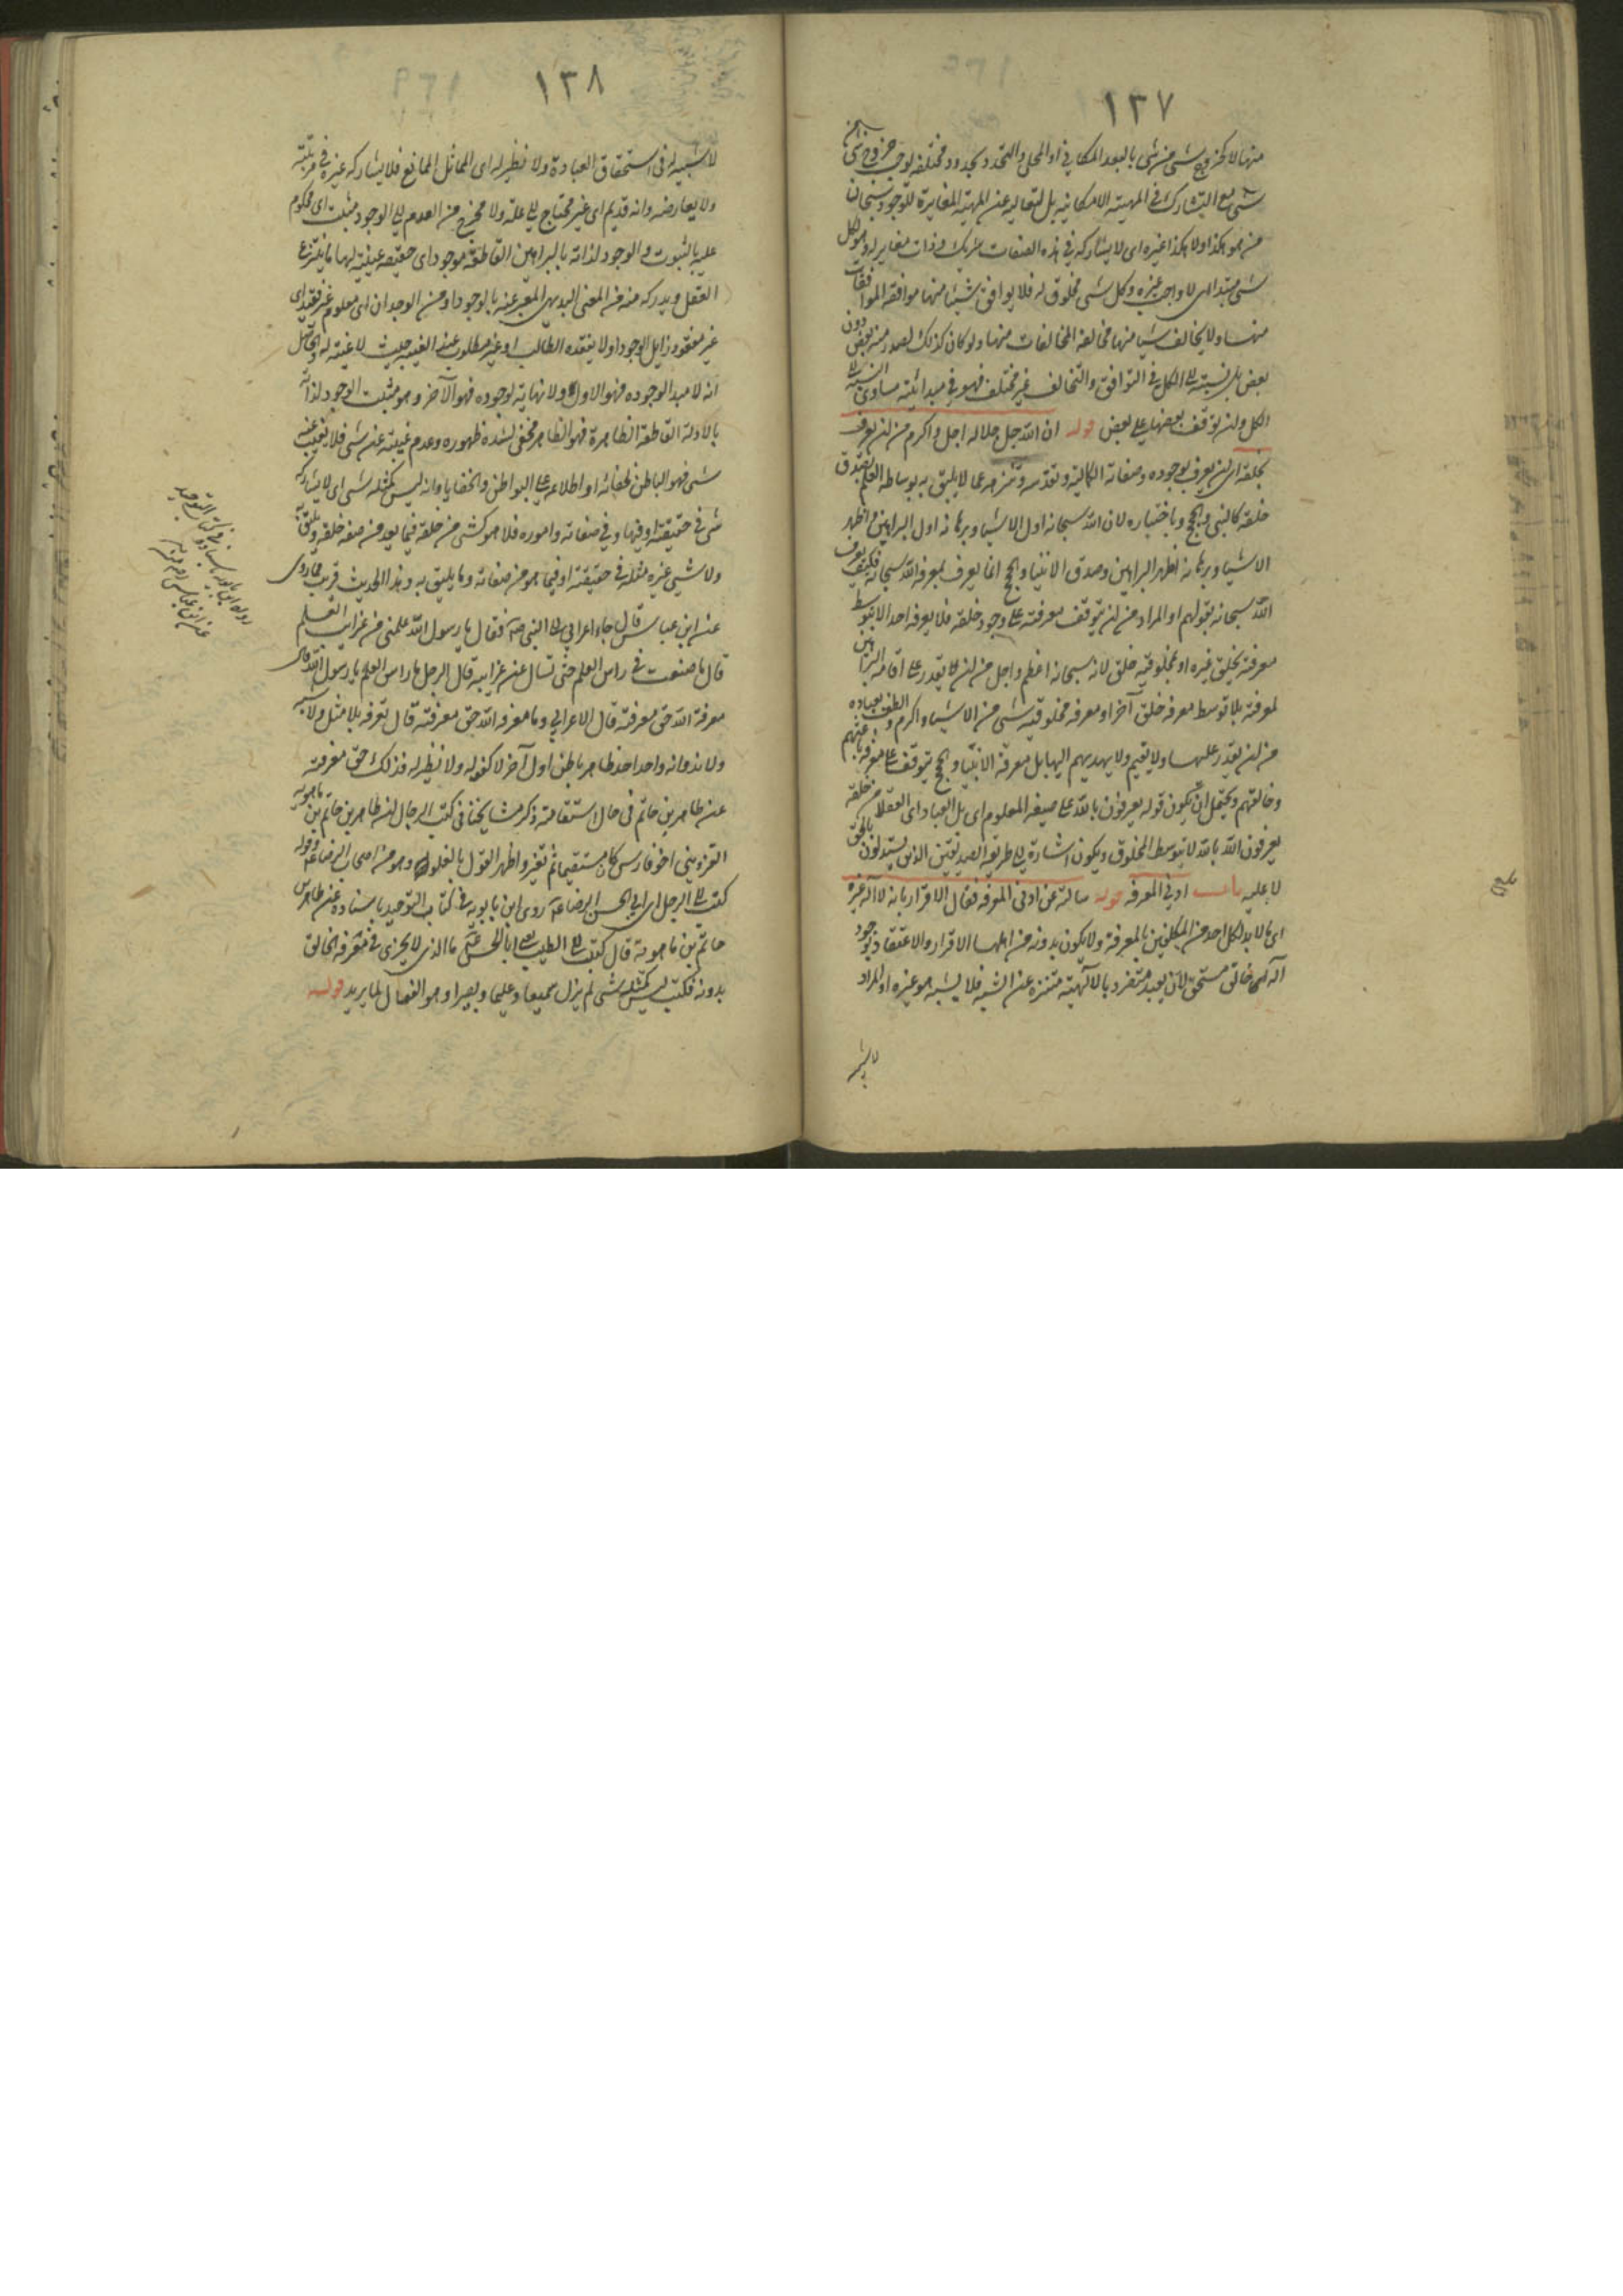 ١٣٧
منها لا كخروج شى من شى بالبعد المكانى او المحلى والتحدد بحدود مختلفه لوجب خروج شى من
شى مع التشارك فى المهية الامكانيه بل لتعاليه عن المهية المغايرة للوجود سبحان
من هو هكذا ولا هكذا غيره اى لا يشاركه فى هذه الصفات شريك وذات مغاير له وهو لكل
شى مبتدا اى لا واجب غيره وكل شى مخلوق له فلا يوافق شيئا منها موافقه الموافقات
منها ولا يخالف شيئا منها مخالفة المخالفات منها ولو كان كذلك لصدر منه بعض دون
بعض بل نسبته الى الكل فى التوافق والتخالف غير مختلف فهو فى مبدائيته مساوى النسبة الى
الكل وان توقف بعضها على بعض قوله ان الله جل جلاله اجل واكرم من ان يعرف
بخلقه اى ان يعرف بوجوده وصفاته الكاليه وتقدسه وتنزهه عما لا يليق به بوساطه العلم بصدق
خلقه كالنبى والحجج وباختياره لان الله سبحانه اول الاشياء وبرهانه اول البراهين واظهر
الاشياء وبرهانه اظهر البراهين وصدق الانبياء والحجج انما يعرف بمعرفه الله سبحانه فكيف يعرف
الله سبحانه بقولهم او المراد من ان يتوقف معرفته على وجود خلقه فلا يعرفه احد الا بتوسط
معرفة بخلق غيره او بمخلوقيه خلق لانه سبحانه اعظم واجل من ان لا يقدر على اقامه البراهين
لمعرفته بلا توسط معرفه خلق آخر او معرفه مخلوقيه شى من الاشياء واكرم والطف بعباده
من ان يقدر عليها ولا يقيم ولا يهديهم اليها بل معرفة الانبياء والحجج يتوقف على معرفة باعثهم
وخالقهم ويحتمل ان يكون قوله يعرفون بالله على صيغه المعلوم اى بل العباد اى العقلا من خلقه
يعرفون الله بالله لا بتوسط المخلوق ويكون اشارة الى طريقه الصديقين الذين يستدلون بالحق
لا عليه باب ادنى المعرفه قوله سالته عن ادنى المعرفه فقال الاقرار بانه لا آله غيره
اى ما لا بد لكل احد من المكلفين بالمعرفة ولا يكون بدونه من اهلها الاقرار والاعتقاد بوجود
آله اى خالق مستحق لان يعبد متفرد بالآلهية متنزه عن الشبه فلا يشبه هو غيره او المراد
لا شبيه
بلغ
١٣٨
لا شبيه له فى استحقاق العبادة ولا نظير له اى المماثل الممانع فلا يشاركه غيره فى مرتبته
ولا يعارضه وانه قديم اى غير محتاج الى علة ولا مخرج من العدم الى الوجود مثبت اى محكوم
عليه بالثبوت والوجود لذاته بالبراهين القاطعة موجود اى حقيقه عينيه لها ما ينتزع
العقل ويدركه منه من المعنى البديهى المعبر عنه بالوجود او من الوجدان اى معلوم غير فقيد اى
غير مفقود زايل الوجود او لا يفقده الطالب او غير مطلوب عند الغيبه حيث لا غيبه له والحاصل
انه لا مبدا لوجوده فهو الاول ولا نهايه لوجوده فهو الآخر وهو مثبت الوجود لذاته
بالادلة القاطعة الظاهرة فهو الظاهر مختفى لشده ظهوره وعدم غيبته عن شى فلا يغيب عنه
شى فهو الباطن لخفائه او اطلاعه على البواطن والخفايا وانه ليس كمثله شى اى لا يشاركه
شى فى حقيقته او فيها وفى صفاته واموره فلا هو كشى من خلقه فيما يعد من صفه خلقه ويليق به
ولا شبى غيره مثله فى حقيقته او فيما هو من صفاته وما يليق به وهذا الحديث قريب مما روى
عن ابن عباس قال جاء اعرابى الى النبى صلعم فقال يا رسول الله علمنى من غرايب العلم
قال ما صنعت فى راس العلم حتى تسال عن غرايبه قال الرجل ما راس العلم يا رسول الله قال
معرفة الله حق معرفته قال الاعرابى وما معرفه الله حق معرفته قال تعرفه بلا مثل ولا شبيه
ولا ند وانه واحد احد ظاهر باطن اول آخر لا كفو له ولا نظير له فذلك حق معرفته
عن طاهر بن حاتم فى حال استقامته ذكر مشايخنا فى كتب الرجال ان طاهر بن حاتم بن ماهويه
القزوينى اخو فارس كان مستقيما ثم تغير واظهر القول بالغلو وهو من اصحاب الرضا ع وقوله
كتب الى الرجل اى ابى الحسن الرضا ع روى ابن بابويه فى كتاب التوحيد باسناده عن طاهر بن
حاتم بن ماهويه قال كتبت الى الطيب يعنى ابا الحسن ع ما الذى لا يجزى فى معرفه الخالق
بدونه فكتب ليس كمثله شى لم يزل سميعا وعليما وبصيرا وهو الفعال لما يريد قوله
رواه ابن بابويه باسناده فى كتاب التوحيد
عن ابن عباس